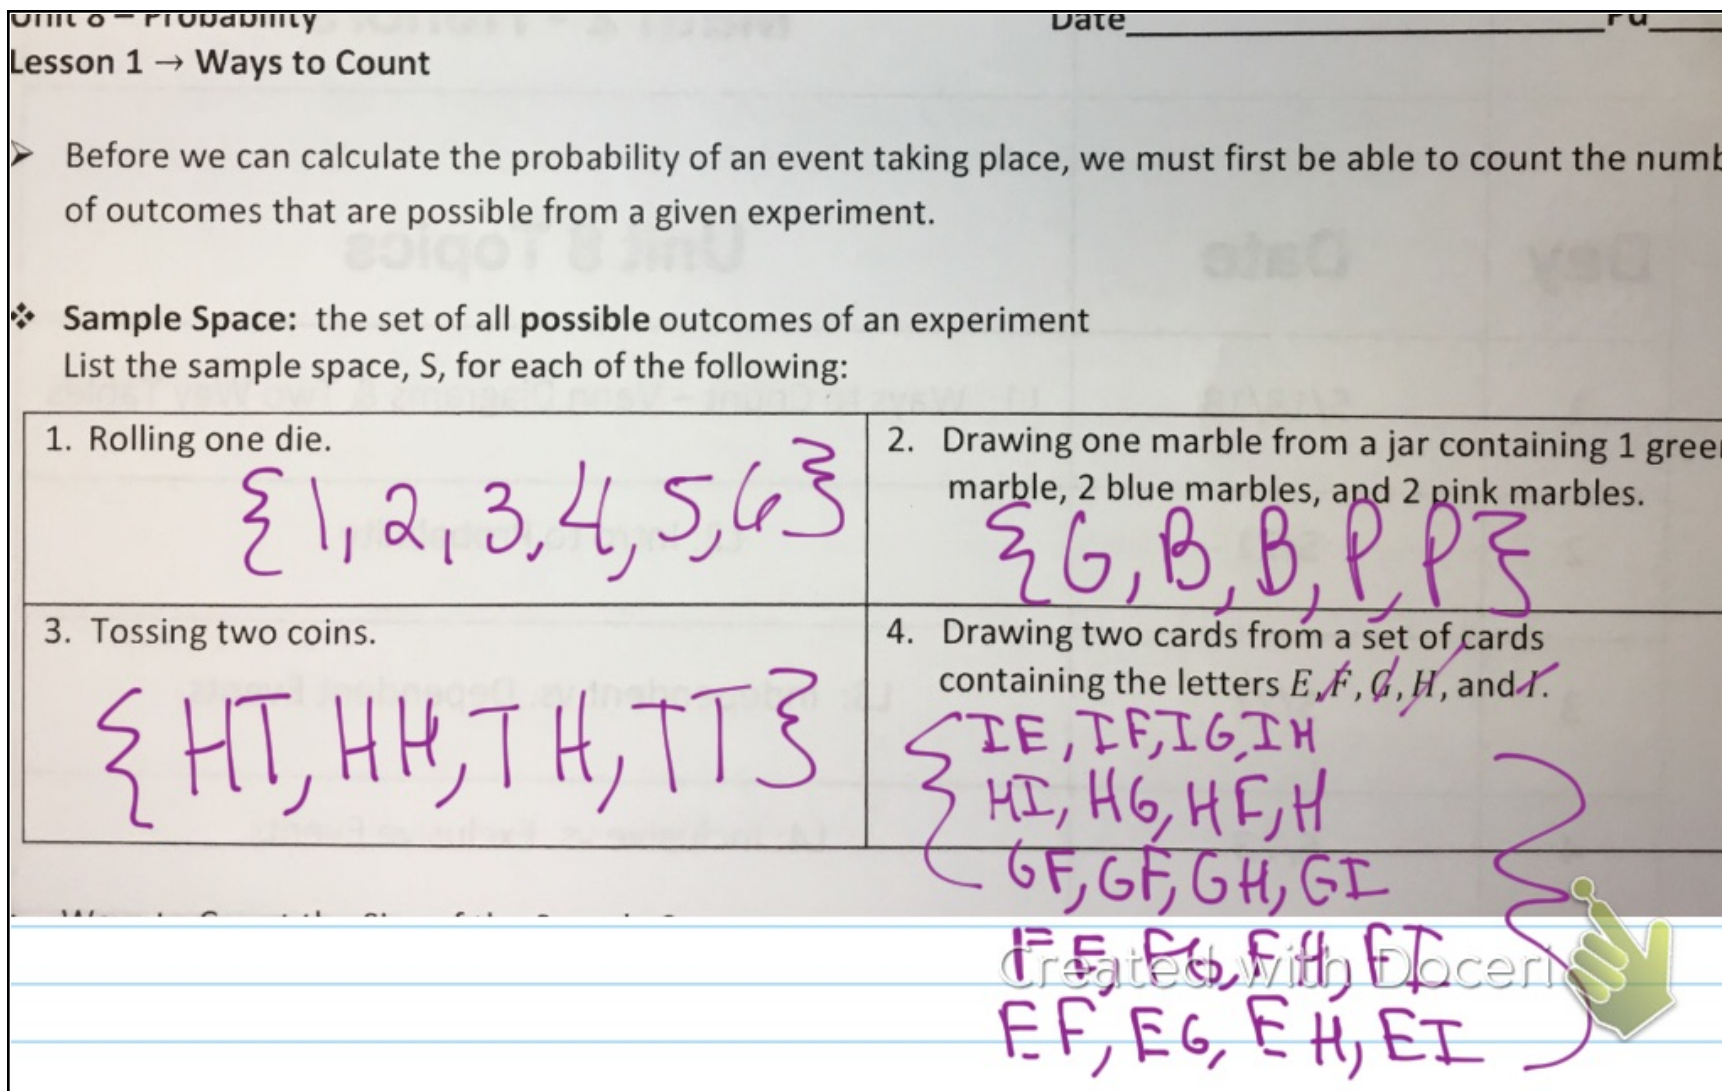 Unit 8 – Probability Date Pd
Lesson 1 → Ways to Count
➢ Before we can calculate the probability of an event taking place, we must first be able to count the numb
of outcomes that are possible from a given experiment.
❖ Sample Space: the set of all possible outcomes of an experiment
List the sample space, S, for each of the following:
1. Rolling one die.
{1,2,3,4,5,6}
2. Drawing one marble from a jar containing 1 gree
marble, 2 blue marbles, and 2 pink marbles.
{G, B, B, P, P}
3. Tossing two coins.
{HT, HH, TH, TT}
4. Drawing two cards from a set of cards
containing the letters E, F, G, H, and I.
{IE, IF, IG, IH
HI, HG, HF, H
GF, GF, GH, GI
FE, FG, FH, FI
EF, EG, EH, EI}
Created with Doceri